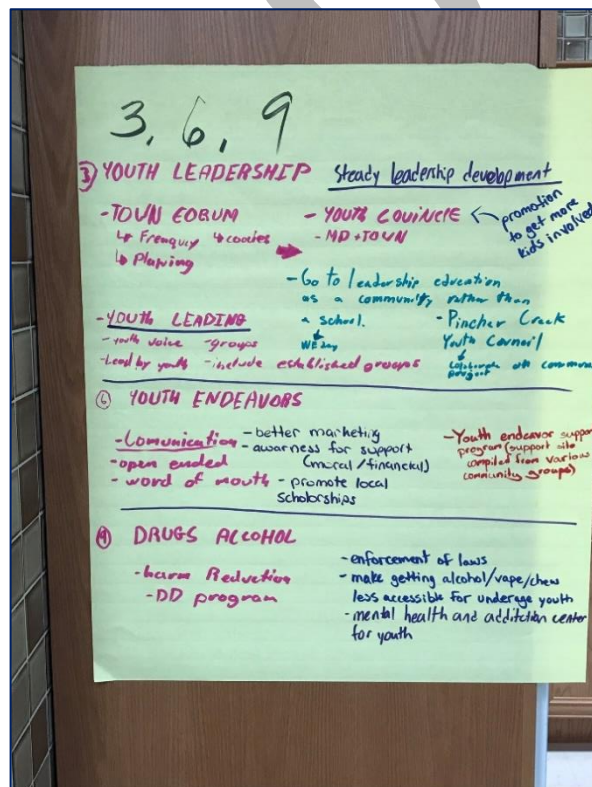 3, 6, 9
③ YOUTH LEADERSHIP steady leadership development
- TOWN FORUM
↳ Frenquiy ↳ cookies
↳ Planing
- YOUTH COUINCIE
- MD + TOWN
promotion
to get more
kids involved
- Go to leadership education
as a community rather than
a school.
↓
WE day
- Pincher Creek
Youth Council
↓
project
- YOUTH LEADING
- youth voice - groups
- Lead by youth - include established groups
⑥ YOUTH ENDEAVORS
- Comunication
- open ended
- word of mouth
- better marketing
- awarness for support
(moral/financial)
- promote local
Scholorships
- Youth endeavor support
program (support site
compiled from various
community groups)
⑨ DRUGS ALCOHOL
- harm Reduction
- DD program
- enforcement of laws
- make getting alcohol/vape/chew
less accessible for underage youth
- mental health and additction center
for youth